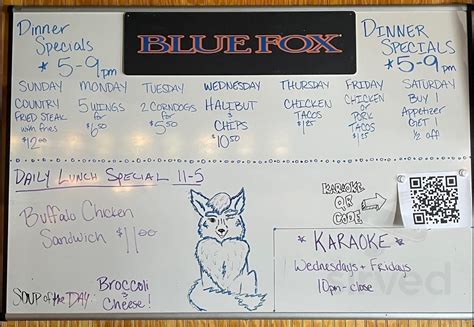 Dinner
Specials
* 5-9pm
BLUE FOX
DINNER
SPECIALS
* 5-9pm
SUNDAY
COUNTRY
FRIED STEAK
with fries
$12.00
MONDAY
5 WINGS
for
$6.50
TUESDAY
2 CORNDOGS
for
$5.50
WEDNESDAY
HALIBUT
&
CHIPS
$10.50
THURSDAY
CHICKEN
TACOS
FRIDAY
CHICKEN
or
PORK
TACOS
SATURDAY
BUY 1
Appetizer
GET 1
1/2 off
DAILY LUNCH SPECIAL 11-5
Buffalo Chicken
Sandwich $11.00
SOUP of the DAY
Broccoli
& Cheese!
KARAOKE
QR
CODE
* KARAOKE *
Wednesdays + Fridays
10pm - close